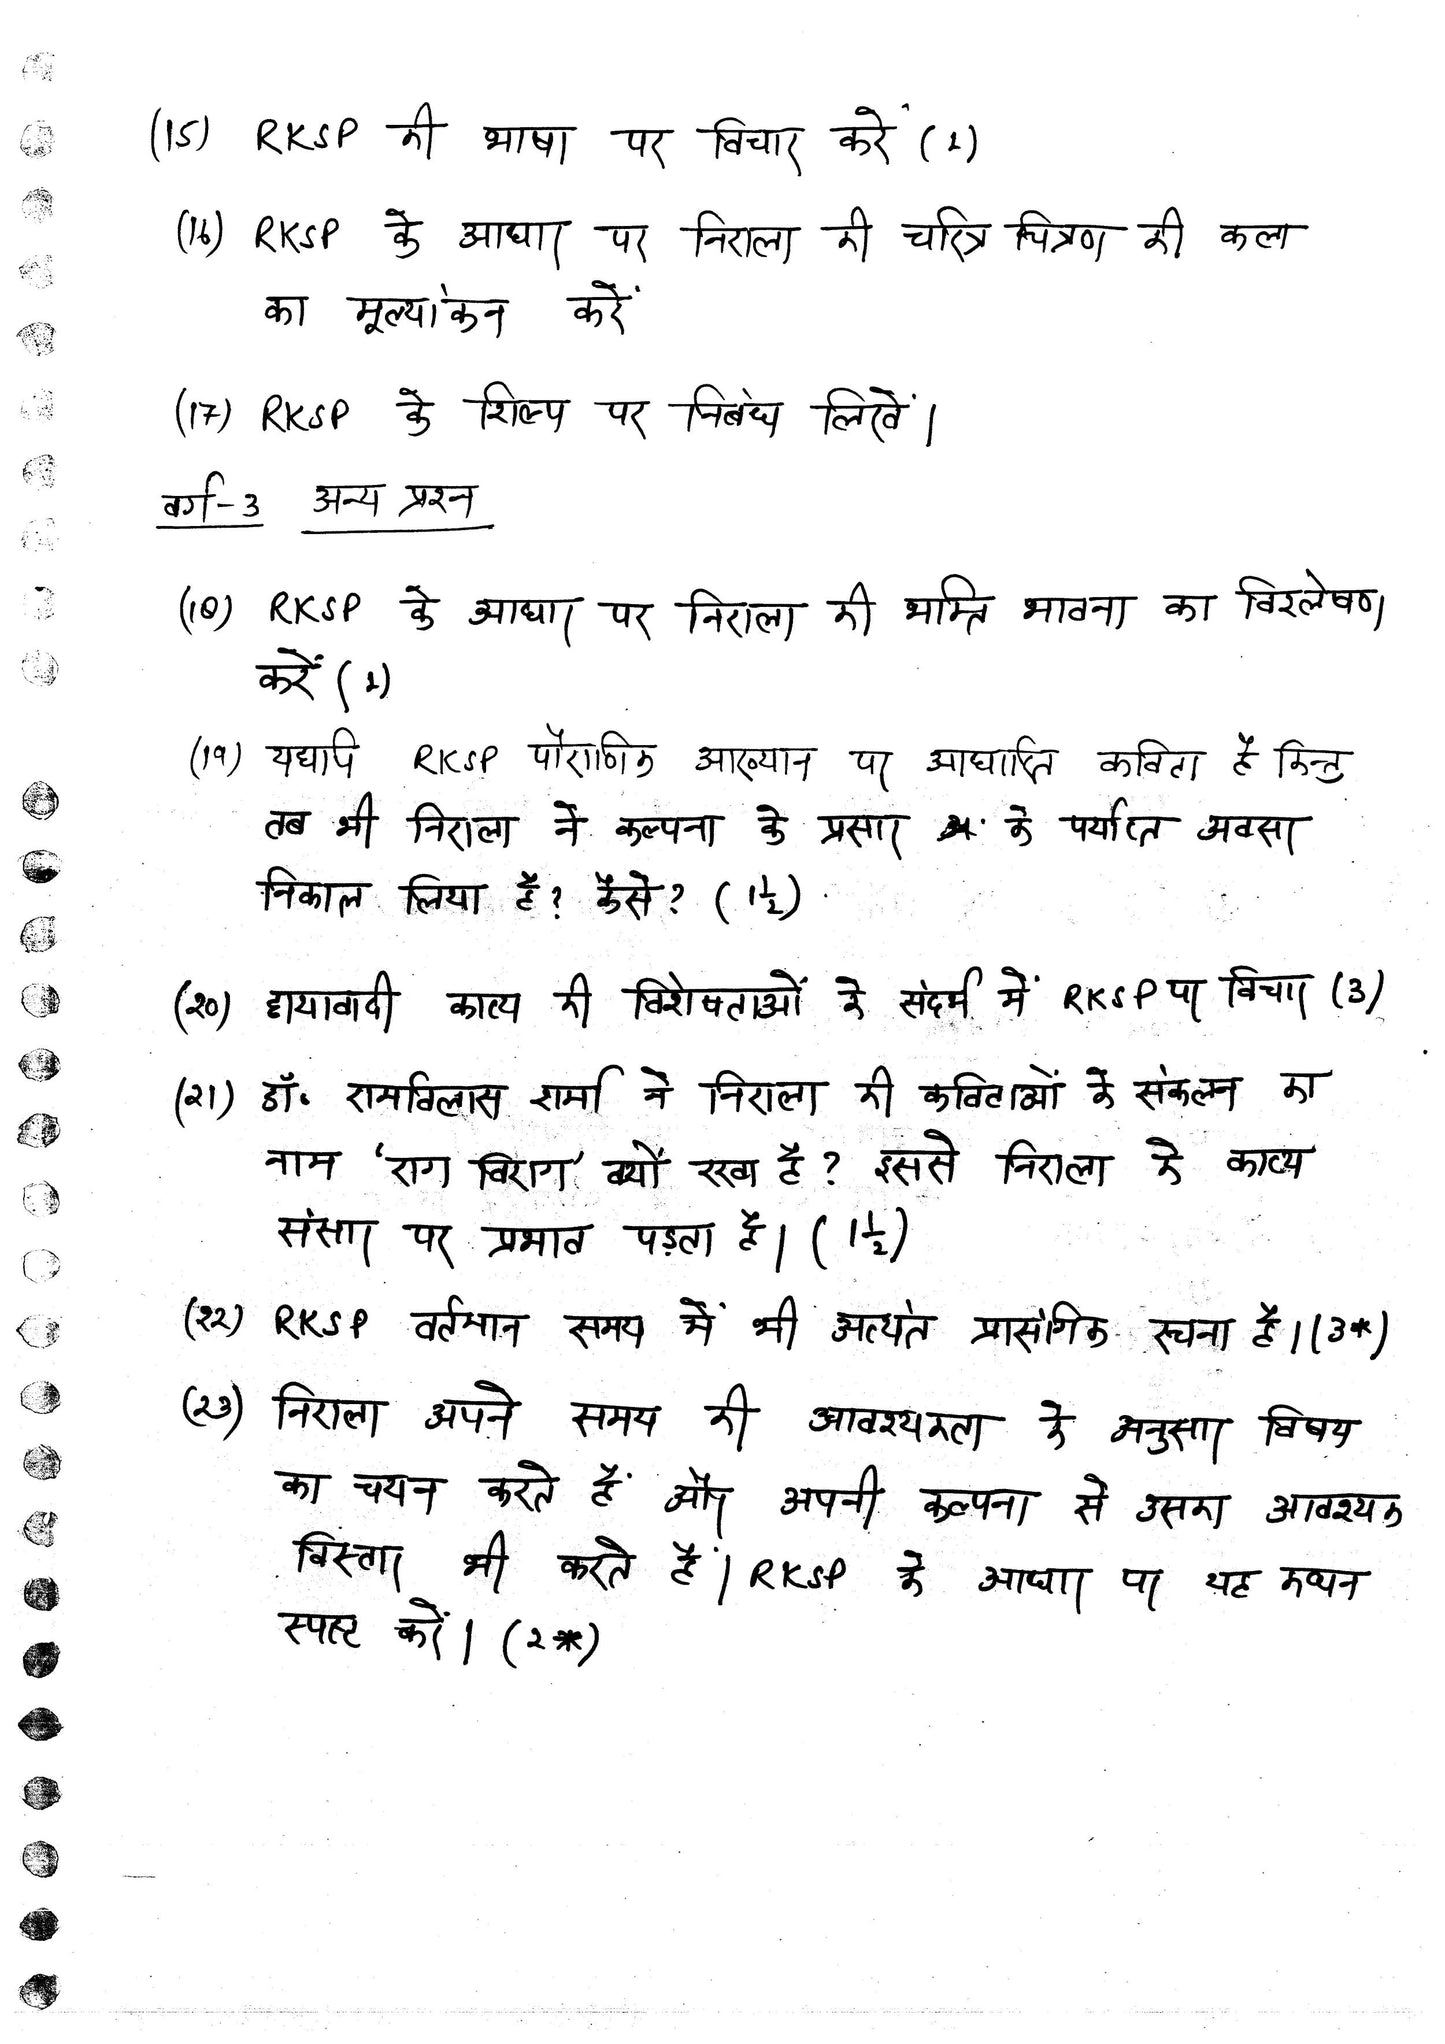 (15) RKSP की भाषा पर विचार करें (1)
(16) RKSP के आधार पर निराला की चरित्र चित्रण की कला
का मूल्यांकन करें
(17) RKSP के शिल्प पर निबंध लिखें।
वर्ग-3 अन्य प्रश्न
(18) RKSP के आधार पर निराला की भक्ति भावना का विश्लेषण
करें (1)
(19) यद्यपि RKSP पौराणिक आख्यान पर आधारित कविता है किन्तु
तब भी निराला ने कल्पना के प्रसार के पर्याप्त अवसर
निकाल लिया है? कैसे? (1½)
(20) छायावादी काव्य की विशेषताओं के संदर्भ में RKSP पर विचार (3)
(21) डॉ. रामविलास शर्मा ने निराला की कविताओं के संकलन का
नाम 'राग विराग' क्यों रखा है? इससे निराला के काव्य
संसार पर प्रभाव पड़ता है। (1½)
(22) RKSP वर्तमान समय में भी अत्यंत प्रासंगिक रचना है। (3*)
(23) निराला अपने समय की आवश्यकता के अनुसार विषय
का चयन करते हैं और अपनी कल्पना से उसका आवश्यक
विस्तार भी करते हैं। RKSP के आधार पर यह कथन
स्पष्ट करें। (2*)